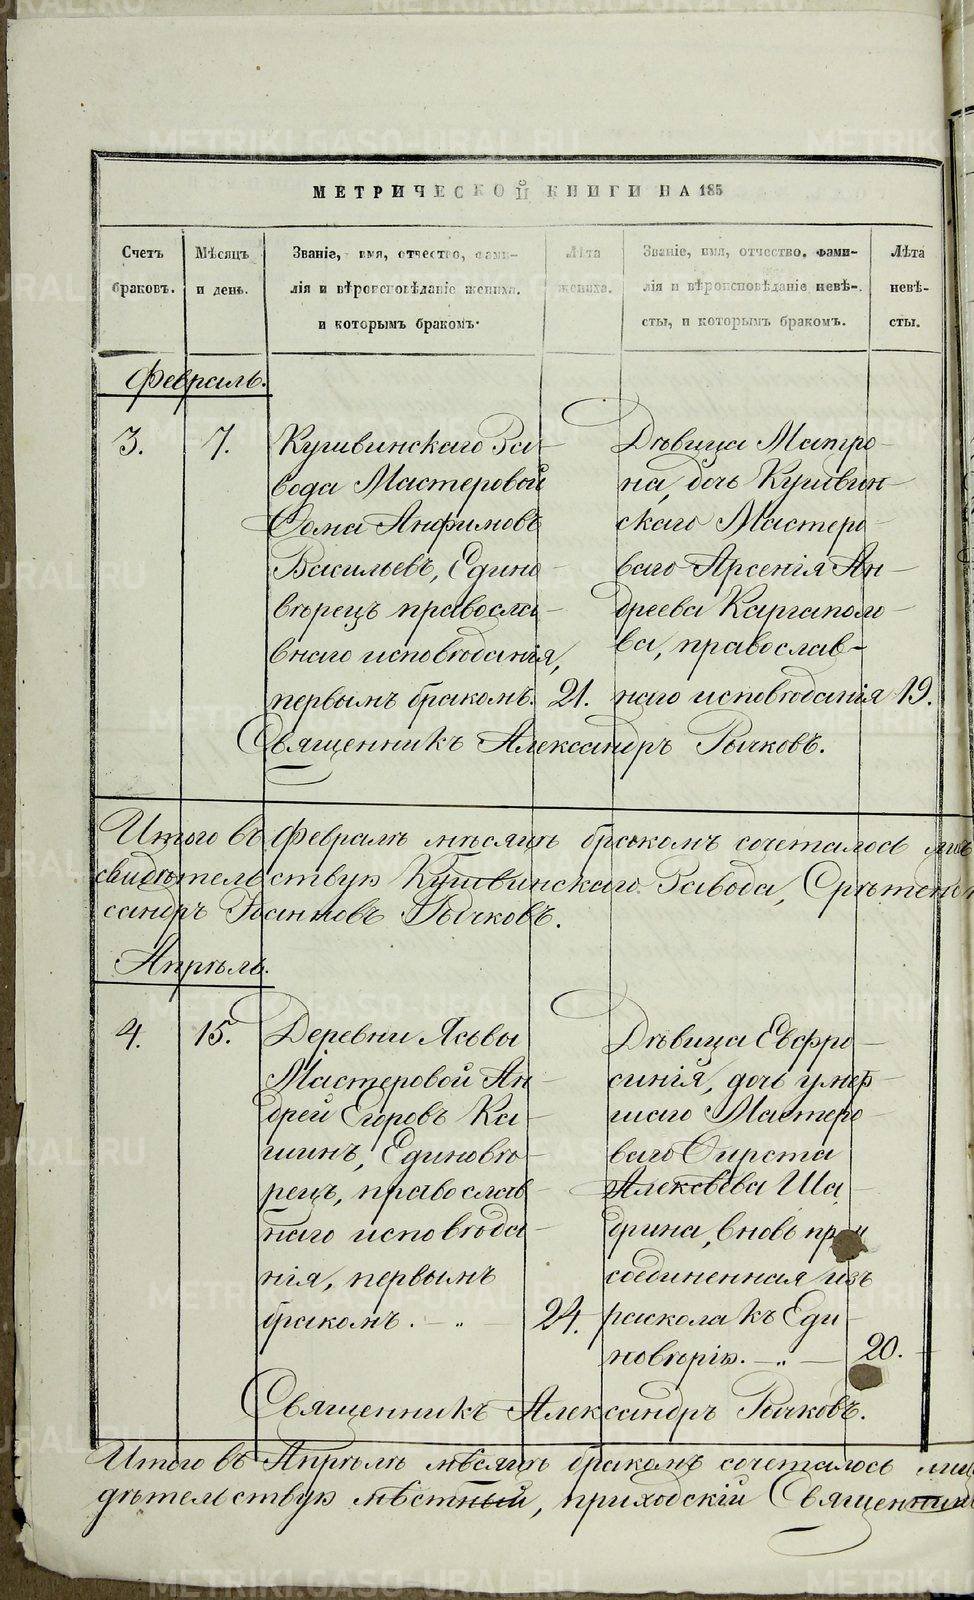 МЕТРИЧЕСКОЙ КНИГИ НА 185
Счетъ браковъ.
Мѣсяцъ и день.
Званіе, имя, отчество, фами-
лія и вѣроисповѣданіе жениха.
и которымъ бракомъ.
Лѣта жениха.
Званіе, имя, отчество, фами-
лія и вѣроисповѣданіе невѣ-
сты, и которымъ бракомъ.
Лѣта невѣ-
сты.
Февраль.
3. 7.
Кушвинскаго За-
вода Мастеровой
Ѳома Анфимовъ
Васильевъ, Едино-
вѣрецъ правосла-
внаго исповѣданія,
первымъ бракомъ. 21.
Дѣвица Матро-
на, дочь Кушвин-
скаго Мастеро-
ваго Арсенія Ан-
дреева Каргаполо-
ва, православ-
наго исповѣданія 19.
Священникъ Александръ Рычковъ.
Итого въ Февралѣ мѣсяцѣ бракомъ сочеталось
свидѣтельствую Кушвинскаго Завода, Срѣтен
сандръ Іоанновъ Рычковъ.
Апрѣль.
4. 15.
Деревни Ясьвы
Мастеровой Ан-
дрей Егоровъ Ка-
шинъ, Единовѣ-
рецъ, православ-
наго исповѣда-
нія, первымъ
бракомъ. — „ — 24.
Дѣвица Евфро-
синія, дочь умер-
шаго Мастеро-
ваго Ѳирста
Алексѣева Ша-
дрина, вновь при
соединенная изъ
раскола къ Еди-
новѣрію. — „ — 20.
Священникъ Александръ Рычковъ.
Итого въ Апрѣлѣ мѣсяцѣ бракомъ сочеталось
дѣтельствую мѣстный, приходскій Священник
METRIKI.GASO-URAL.RU